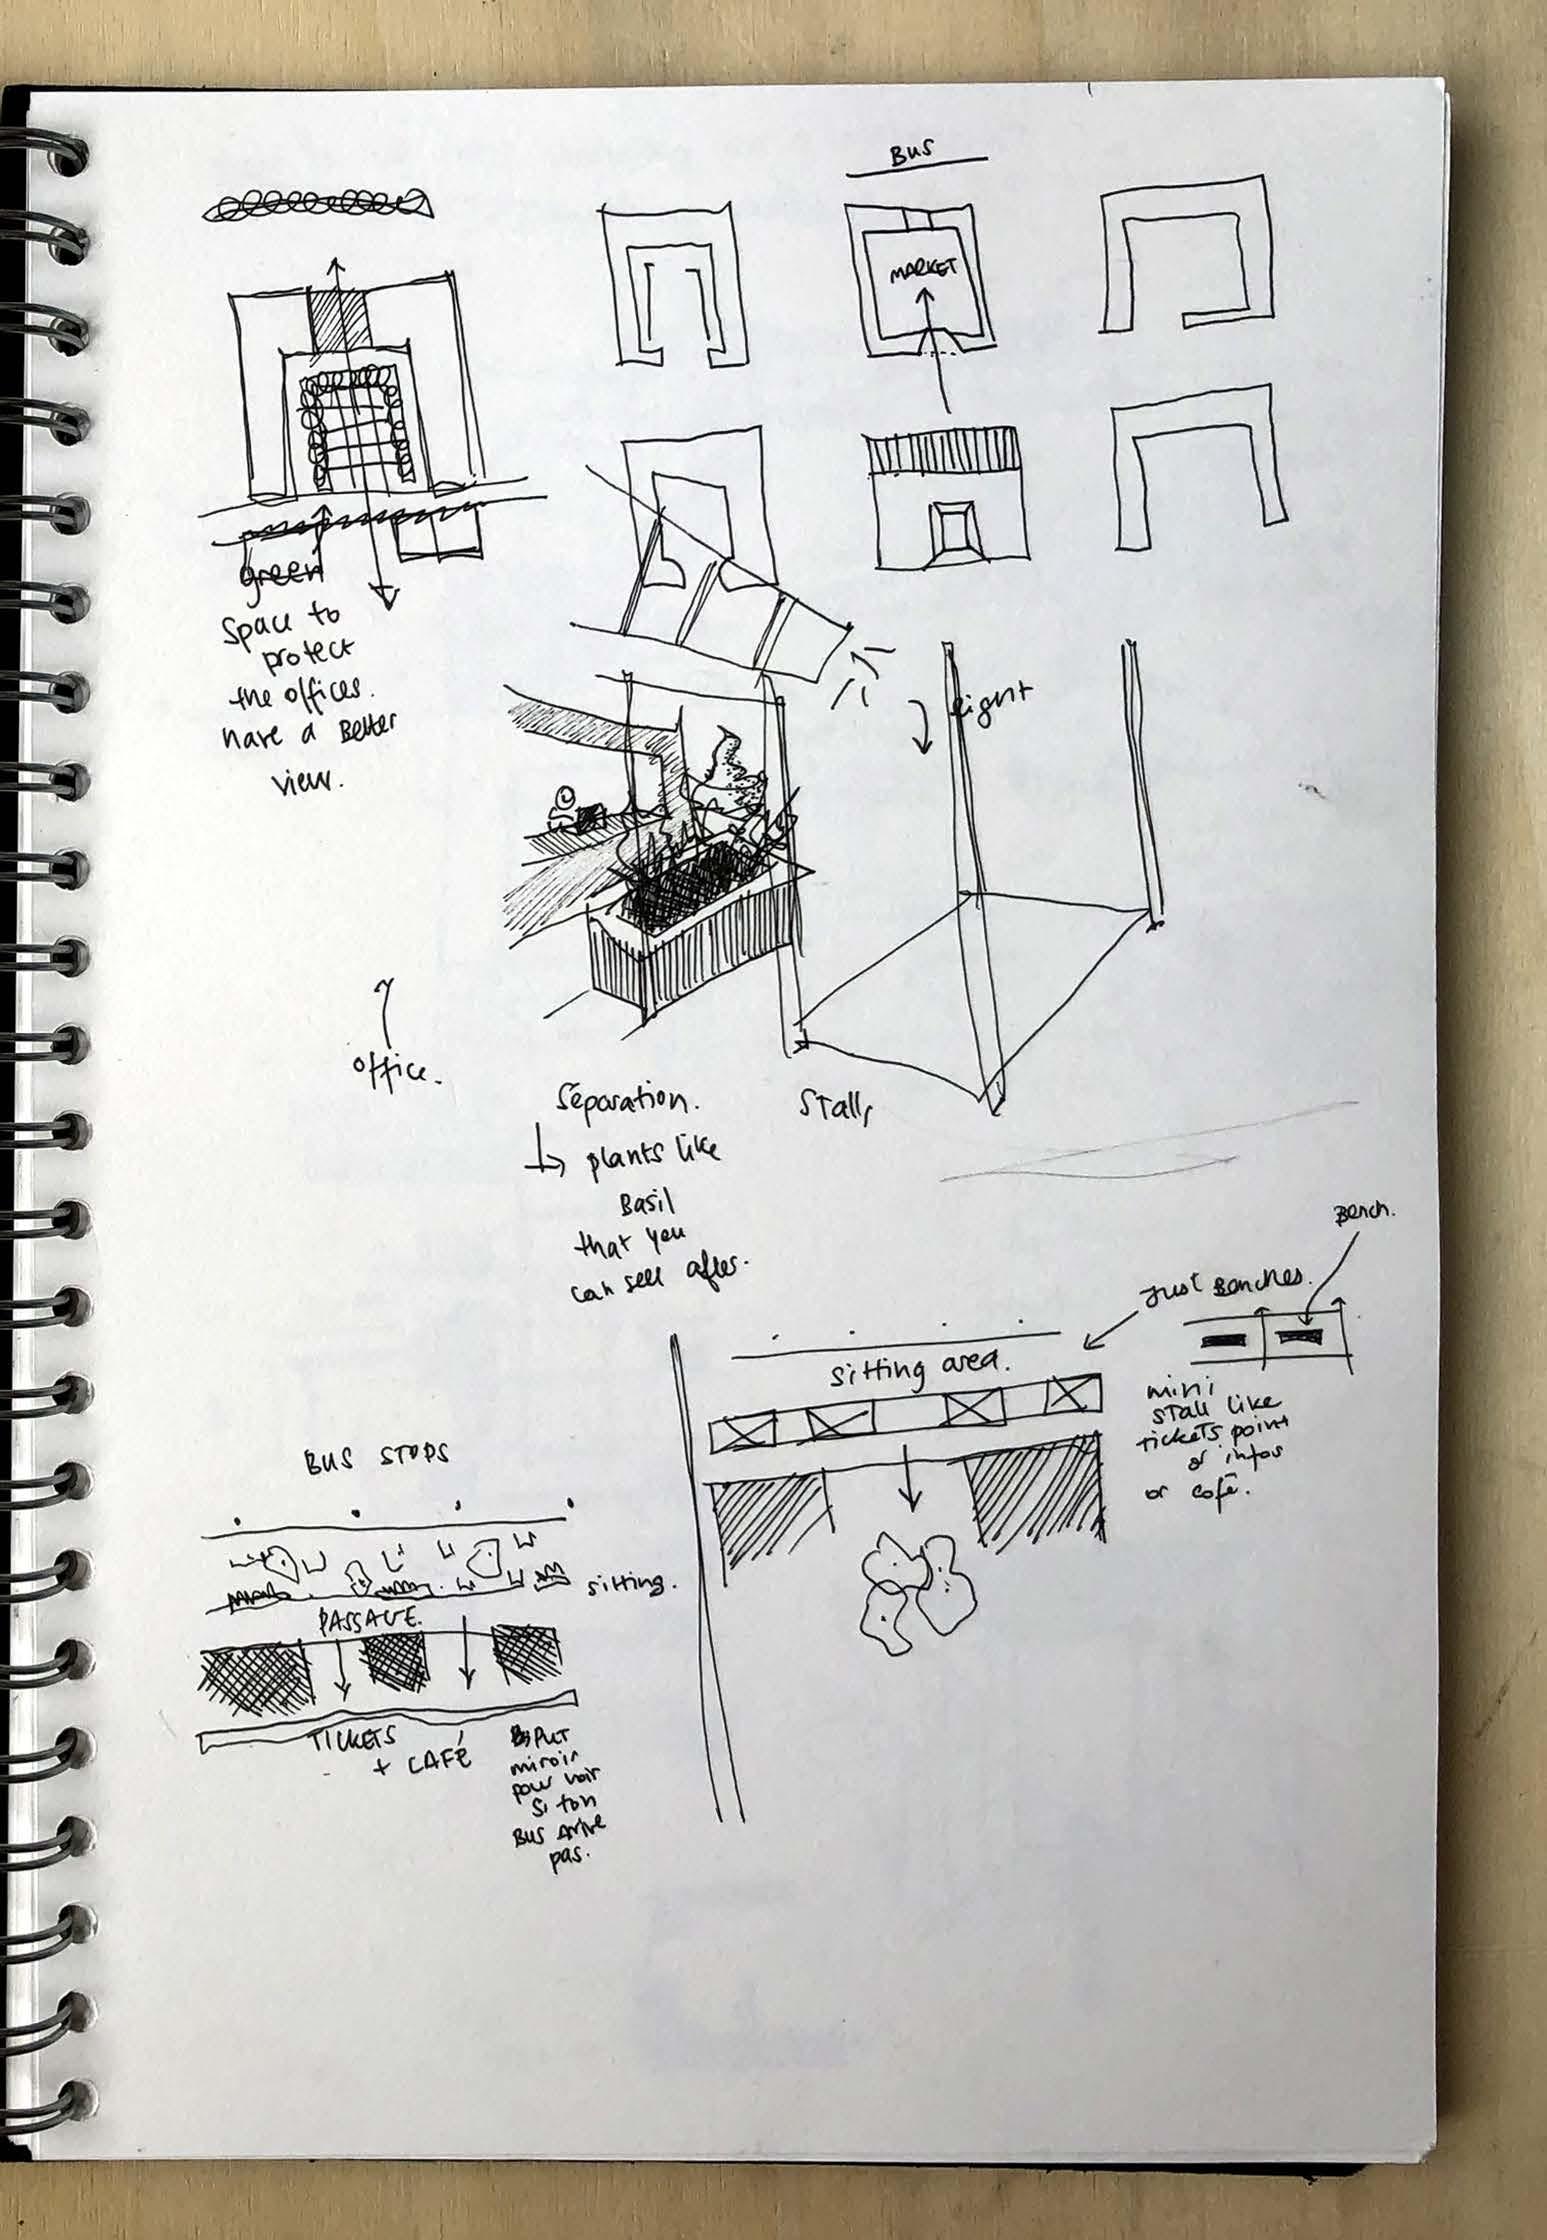 BUS
MARKET
green
Space to
protect
the offices.
have a Better
view.
office.
Séparation.
plants like
Basil
that you
can sell after.
Stall,
Bench.
Just Benches.
sitting area.
mini
stall like
tickets point
or infos
or café.
BUS STOPS
sitting.
PASSAGE.
TICKETS
+ CAFé
PUT
miroir
pour voir
si ton
Bus arive
pas.